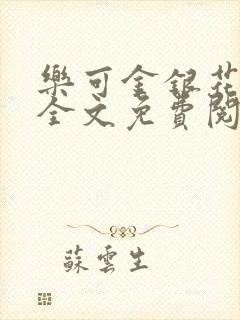 樂可金銀花
全文免費閱
蘇雲生